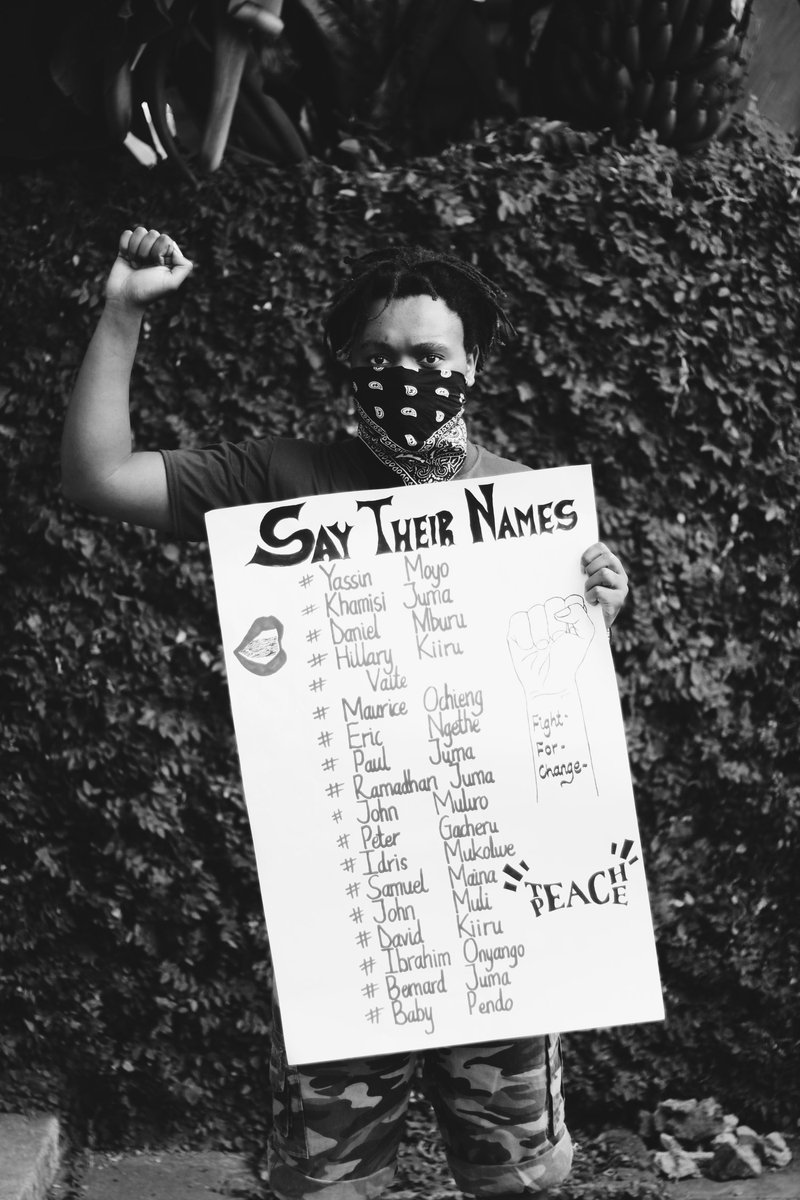 SAY THEIR NAMES
# Yassin Moyo
# Khamisi Juma
# Daniel Mburu
# Hillary Kiiru
# Vaite
# Maurice Ochieng
# Eric Ngethe
# Paul Juma
# Ramadhan Juma
# John Muluro
# Peter Gacheru
# Idris Mukolwe
# Samuel Maina
# John Muli
# David Kiiru
# Ibrahim Onyango
# Bernard Juma
# Baby Pendo
Fight-
For-
Change-
TEACH
PEACE